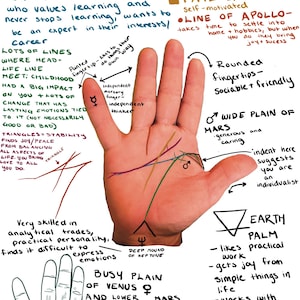 who values learning and
never stops learning, wants to
be an expert in their interests/
career
self-motivated
•LINE OF APOLLO-
takes time to settle into
home + hobbies, but when
you do, they bring
joy + success
LOTS OF LINES
WHERE HEAD-
LIFE LINE
MEET: CHILDHOOD
HAD A BIG IMPACT
ON YOU + LOTS OF
CHANGE THAT HAS
LASTING EMOTIONS TIED
TO IT (NOT NECESSARILY
GOOD OR BAD)
TRIANGLES=STABILITY
FINDS JOY/PEACE
FROM BALANCING
ALL ASPECTS OF
LIFE. YOU BRING
LOVE TO ALL
YOU DO
TRIANGLE
independent
independent
worker
☿
Rounded
fingertips-
Sociable + friendly
♂ WIDE PLAIN OF
MARS
generous and
daring
indent here
suggests
you are
an individualist
♂
Ψ
DEEP MOUND
OF NEPTUNE
Very skilled in
analytical trades,
practical personality,
finds it difficult to
express
emotions
EARTH
PALM
- likes practical
work
- gets joy from
simple things in
life
- works with
BUSY PLAIN
OF VENUS ♀
AND LOWER MARS